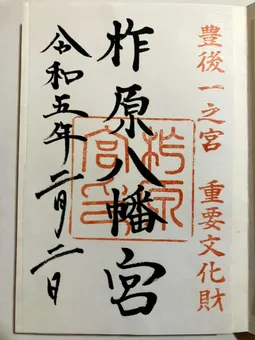 豊後一之宮 重要文化財
柞原八幡宮
柞原
宮印
令和五年二月二日